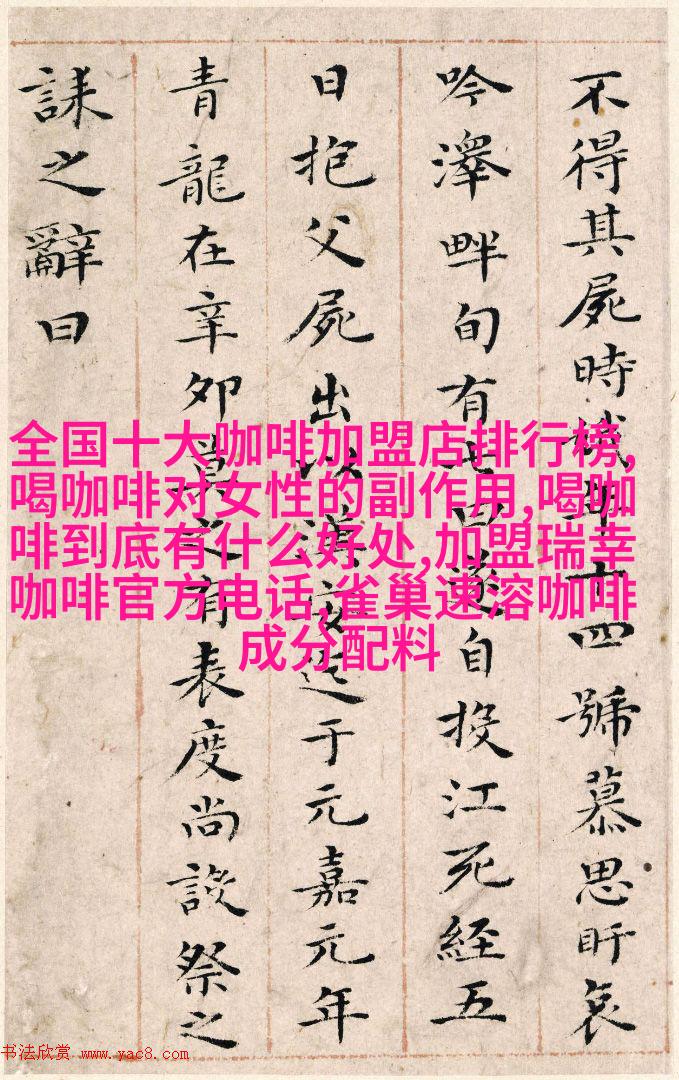 不得其屍時娥年十四號慕思盱哀
吟澤畔旬有七日遂自投江死經五
日抱父屍出以漢安迄于元嘉元年
青龍在辛卯莫之有表度尚設祭之
誄之辭曰
全国十大咖啡加盟店排行榜,
喝咖啡对女性的副作用,喝咖
啡到底有什么好处,加盟瑞幸
咖啡官方电话,雀巢速溶咖啡
成分配料
书法欣赏 www.yac8.com